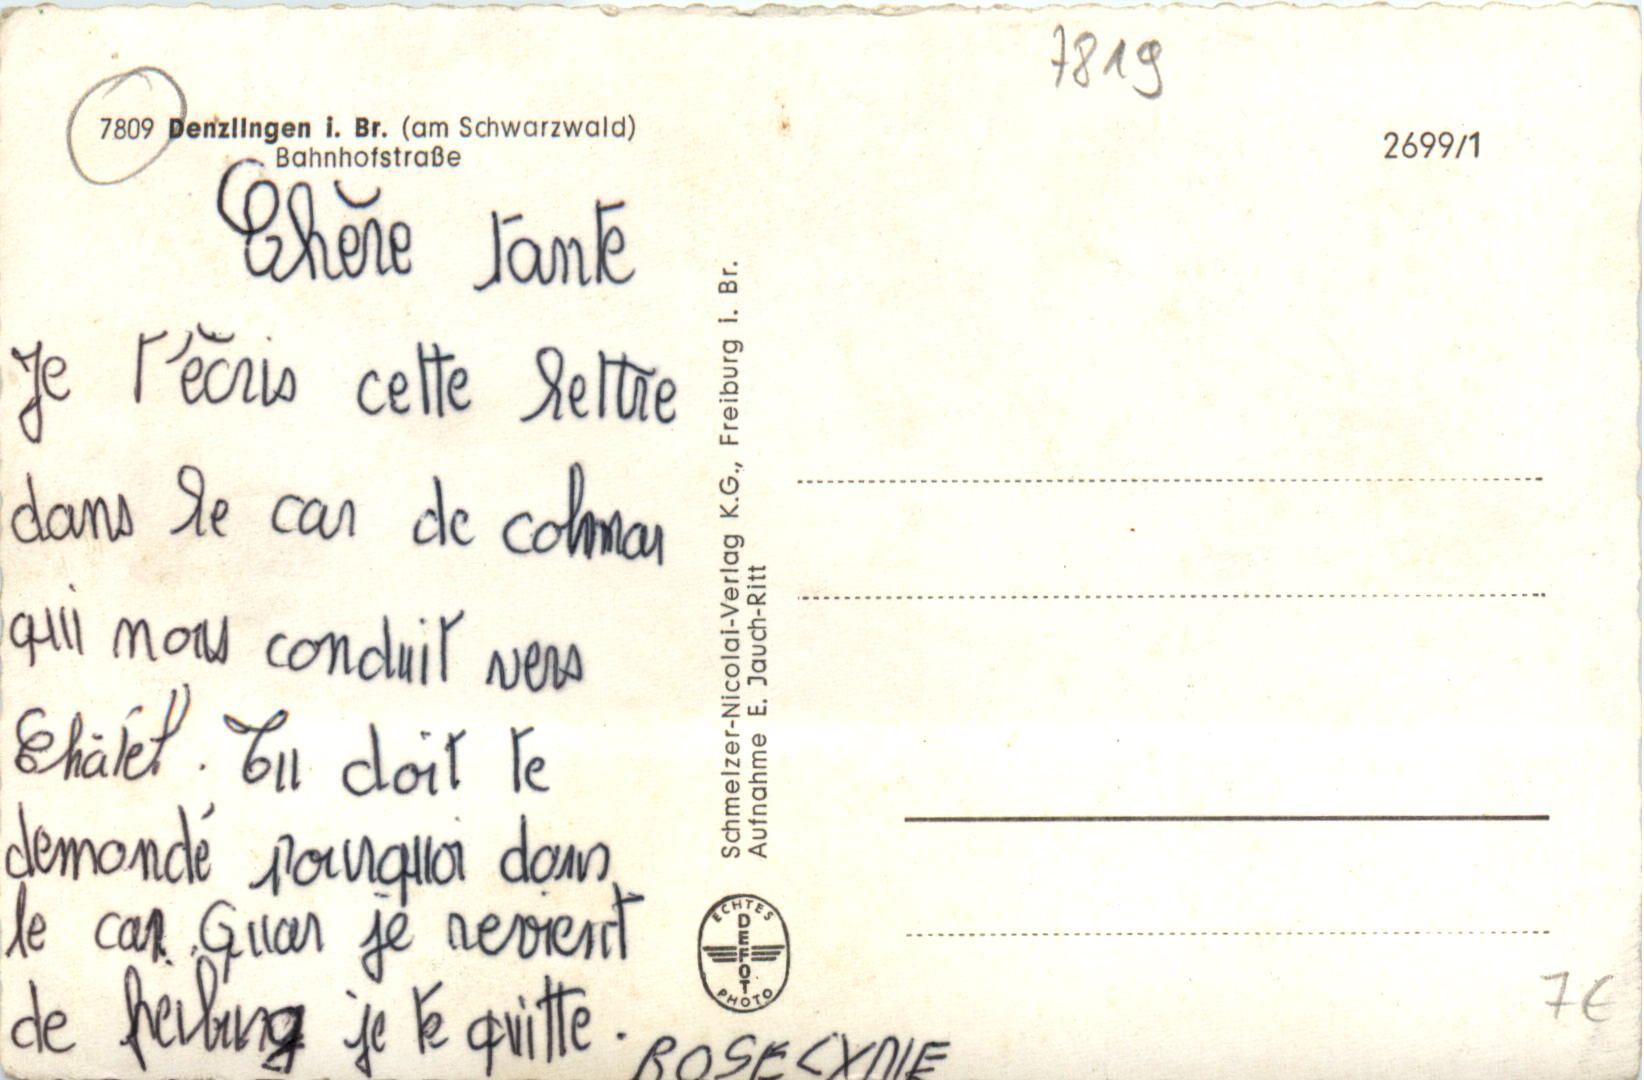 7819
7809 Denzlingen i. Br. (am Schwarzwald)
Bahnhofstraße
2699/1
Chère tante
Je t'écris cette lettre
dans le car de colmar
qui nous conduit vers
Châtel. Tu doit te
demandé pourquoi dans
le car. Quar je revient
de freiburg je te quitte.
ROSELYNE
Schmelzer-Nicolai-Verlag K.G., Freiburg i. Br.
Aufnahme E. Jauch-Ritt
ECHTES
DEFOT
PHOTO
7€